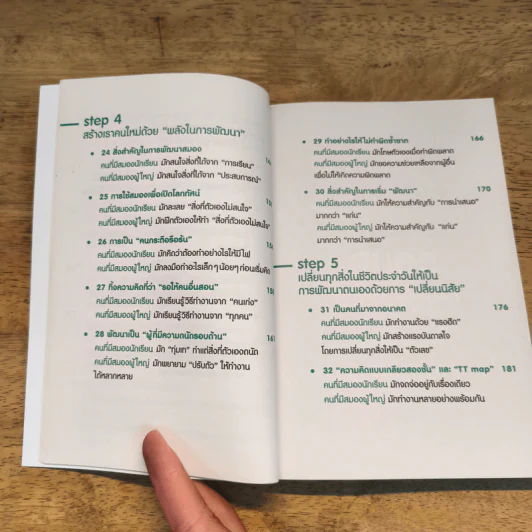 step 4
สร้างเราคนใหม่ด้วย “พลังในการพัฒนา”
• 24 สิ่งสำคัญในการพัฒนาสมอง
คนที่มีสมองนักเรียน มักสนใจสิ่งที่ได้จาก “การเรียน”
คนที่มีสมองผู้ใหญ่ มักสนใจสิ่งที่ได้จาก “ประสบการณ์”
• 25 การใช้สมองเพื่อเปิดโลกทัศน์
คนที่มีสมองนักเรียน มักละเลย “สิ่งที่ตัวเองไม่สนใจ”
คนที่มีสมองผู้ใหญ่ มักฝึกตัวเองให้ทำ “สิ่งที่ตัวเองไม่สนใจ”
• 26 การเป็น “คนกระตือรือร้น”
คนที่มีสมองนักเรียน มักคิดว่าต้องทำอย่างไรให้มีไฟ
คนที่มีสมองผู้ใหญ่ มักลงมือทำอะไรเล็ก ๆ น้อย ๆ ก่อนเริ่มคิด
• 27 ทิ้งความคิดที่ว่า “รอให้คนอื่นสอน”
คนที่มีสมองนักเรียน มักเรียนรู้วิธีทำงานจาก “คนเก่ง”
คนที่มีสมองผู้ใหญ่ มักเรียนรู้วิธีทำงานจาก “ทุกคน”
• 28 พัฒนาเป็น “ผู้ที่มีความถนัดรอบด้าน”
คนที่มีสมองนักเรียน มัก “ทุ่มเท” ทำแต่สิ่งที่ตัวเองถนัด
คนที่มีสมองผู้ใหญ่ มักพยายาม “ปรับตัว” ให้ทำงาน
ได้หลากหลาย
• 29 ทำอย่างไรให้ไม่ทำผิดซ้ำซาก 166
คนที่มีสมองนักเรียน มักโทษตัวเองเมื่อทำผิดพลาด
คนที่มีสมองผู้ใหญ่ มักขอความช่วยเหลือจากผู้อื่น
เพื่อไม่ให้เกิดความผิดพลาด
• 30 สิ่งสำคัญในการเริ่ม “พัฒนา” 170
คนที่มีสมองนักเรียน มักให้ความสำคัญกับ “การนำเสนอ”
มากกว่า “แก่น”
คนที่มีสมองผู้ใหญ่ มักให้ความสำคัญกับ “แก่น”
มากกว่า “การนำเสนอ”
step 5
เปลี่ยนทุกสิ่งในชีวิตประจำวันให้เป็น
การพัฒนาตนเองด้วยการ “เปลี่ยนนิสัย”
• 31 เป็นคนที่มาจากอนาคต 176
คนที่มีสมองนักเรียน มักทำงานด้วย “แรงฮึด”
คนที่มีสมองผู้ใหญ่ มักสร้างแรงบันดาลใจ
โดยการเปลี่ยนทุกสิ่งให้เป็น “ตัวเลข”
• 32 “ความคิดแบบเกลียวสองชั้น” และ “TT map” 181
คนที่มีสมองนักเรียน มักจดจ่ออยู่กับเรื่องเดียว
คนที่มีสมองผู้ใหญ่ มักทำงานหลายอย่างพร้อมกัน